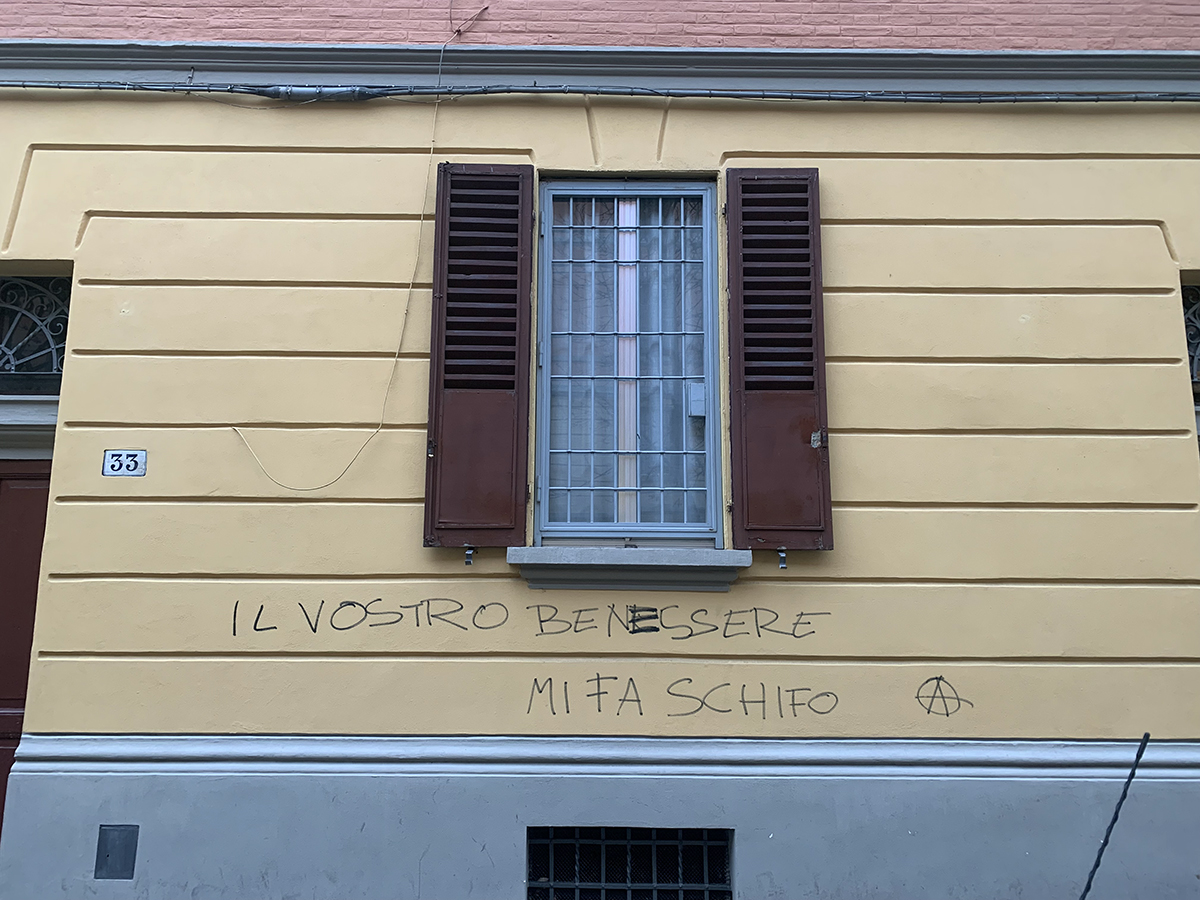 33
IL VOSTRO BENESSERE
MI FA SCHIFO Ⓐ